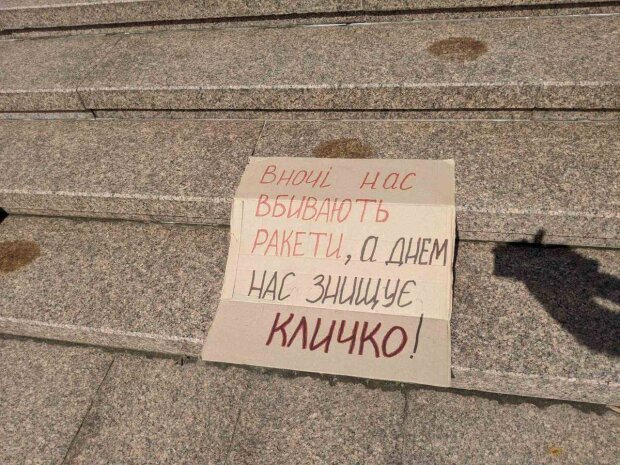 Вночі нас
ВБИВАЮТЬ
РАКЕТИ, а ДНЕМ
НАС ЗНИЩУЄ
КЛИЧКО!